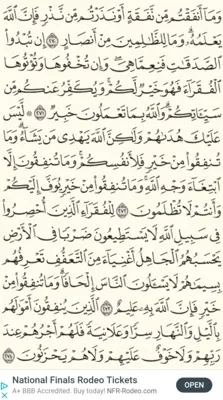 وَمَا أَنفَقْتُم مِّن نَّفَقَةٍ أَوْ نَذَرْتُم مِّن نَّذْرٍ فَإِنَّ اللَّهَ
يَعْلَمُهُ ۗ وَمَا لِلظَّالِمِينَ مِنْ أَنصَارٍ ﴿٢٧٠﴾ إِن تُبْدُوا
الصَّدَقَاتِ فَنِعِمَّا هِيَ ۖ وَإِن تُخْفُوهَا وَتُؤْتُوهَا
الْفُقَرَاءَ فَهُوَ خَيْرٌ لَّكُمْ ۚ وَيُكَفِّرُ عَنكُم مِّن
سَيِّئَاتِكُمْ ۗ وَاللَّهُ بِمَا تَعْمَلُونَ خَبِيرٌ ﴿٢٧١﴾ لَّيْسَ
عَلَيْكَ هُدَاهُمْ وَلَٰكِنَّ اللَّهَ يَهْدِي مَن يَشَاءُ ۗ وَمَا
تُنفِقُوا مِنْ خَيْرٍ فَلِأَنفُسِكُمْ ۚ وَمَا تُنفِقُونَ إِلَّا
ابْتِغَاءَ وَجْهِ اللَّهِ ۚ وَمَا تُنفِقُوا مِنْ خَيْرٍ يُوَفَّ إِلَيْكُمْ
وَأَنتُمْ لَا تُظْلَمُونَ ﴿٢٧٢﴾ لِلْفُقَرَاءِ الَّذِينَ أُحْصِرُوا
فِي سَبِيلِ اللَّهِ لَا يَسْتَطِيعُونَ ضَرْبًا فِي الْأَرْضِ
يَحْسَبُهُمُ الْجَاهِلُ أَغْنِيَاءَ مِنَ التَّعَفُّفِ تَعْرِفُهُم
بِسِيمَاهُمْ لَا يَسْأَلُونَ النَّاسَ إِلْحَافًا ۗ وَمَا تُنفِقُوا مِنْ
خَيْرٍ فَإِنَّ اللَّهَ بِهِ عَلِيمٌ ﴿٢٧٣﴾ الَّذِينَ يُنفِقُونَ أَمْوَالَهُم
بِاللَّيْلِ وَالنَّهَارِ سِرًّا وَعَلَانِيَةً فَلَهُمْ أَجْرُهُمْ عِندَ
رَبِّهِمْ وَلَا خَوْفٌ عَلَيْهِمْ وَلَا هُمْ يَحْزَنُونَ ﴿٢٧٤﴾
National Finals Rodeo Tickets
A+ BBB Accredited. Buy today! NFR-Rodeo.com
OPEN